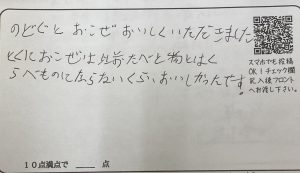 のどぐろ おこぜ おいしくいただきました
とくにおこぜは以前たべた物とはく
らべものにならないくらいおいしかったです。
スマホでも投稿
OK!チェック欄
記入後フロント
へお渡し下さい。
10点満点で 点